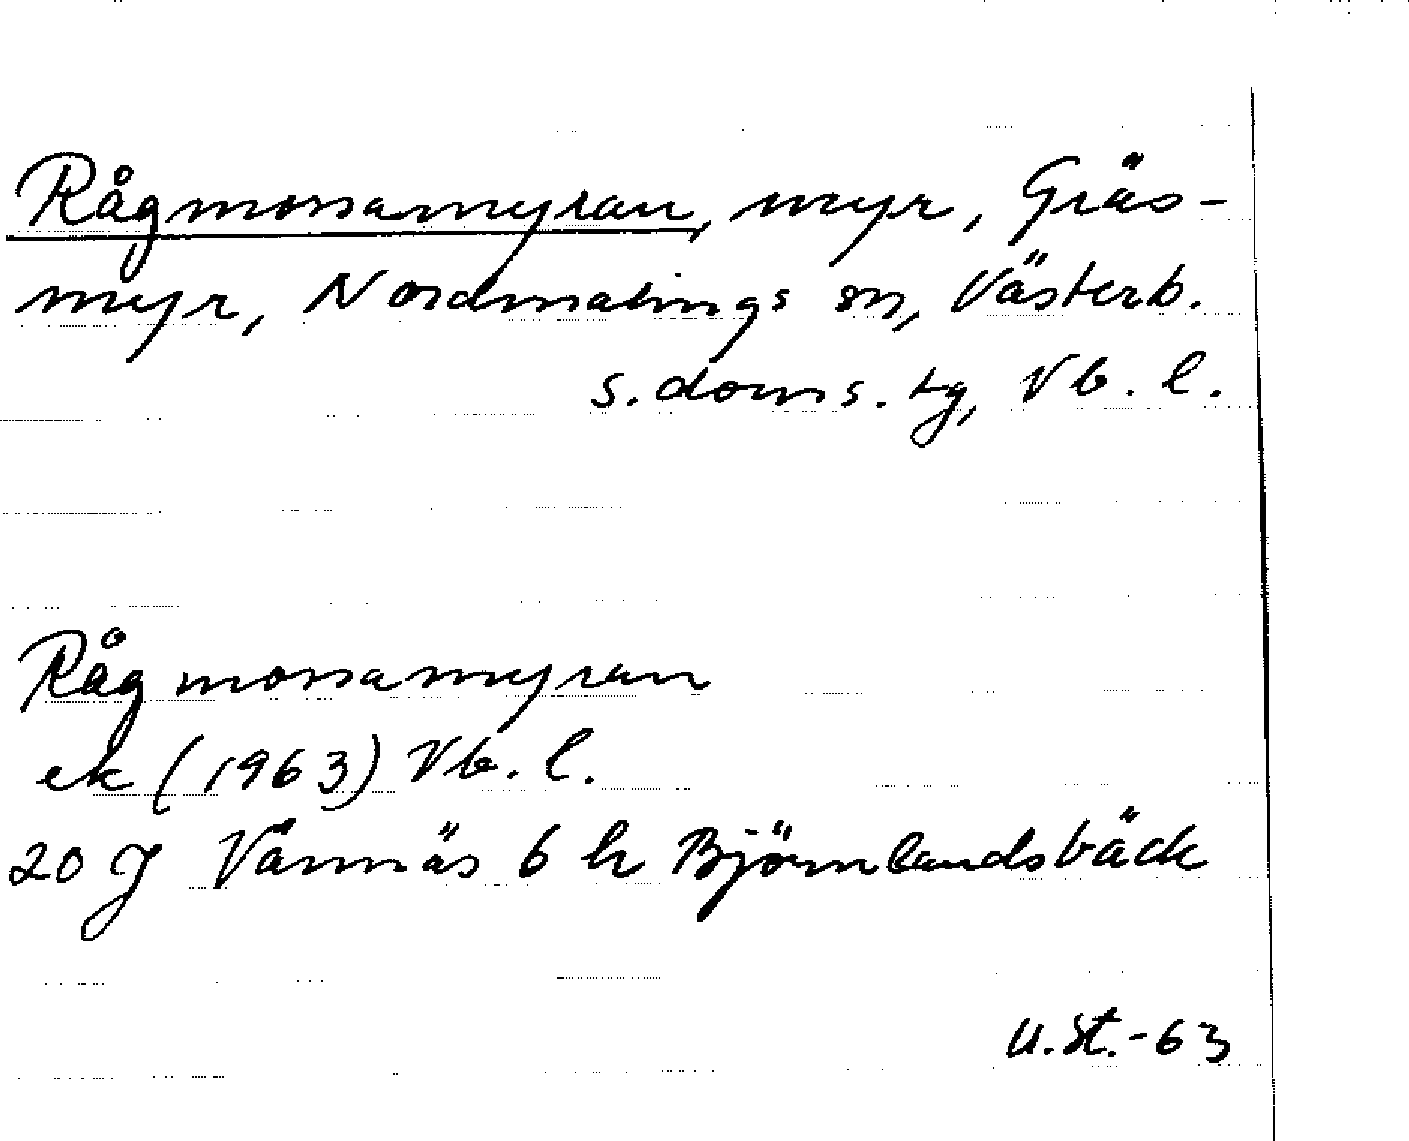 Rågmossamyran, myr, Gräs-
myr, Nordmalings sn, Västerb.
s. doms. tg, Vb. l.
Rågmossamyran
ek (1963) Vb. l.
20 J Vännäs 6 h Björnlandsbäck
U. St. -63